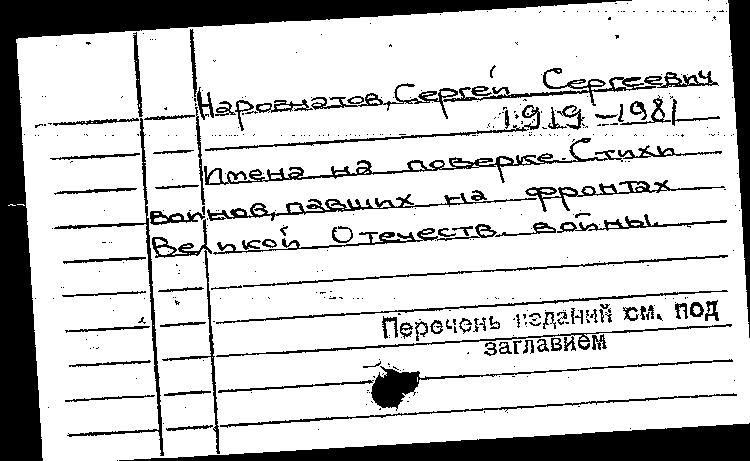 Наровчатов, Сергей Сергеевич
1919-1981
Имена на поверке. Стихи
воинов, павших на фронтах
Великой Отечеств. войны.
Перечень изданий см. под
заглавием